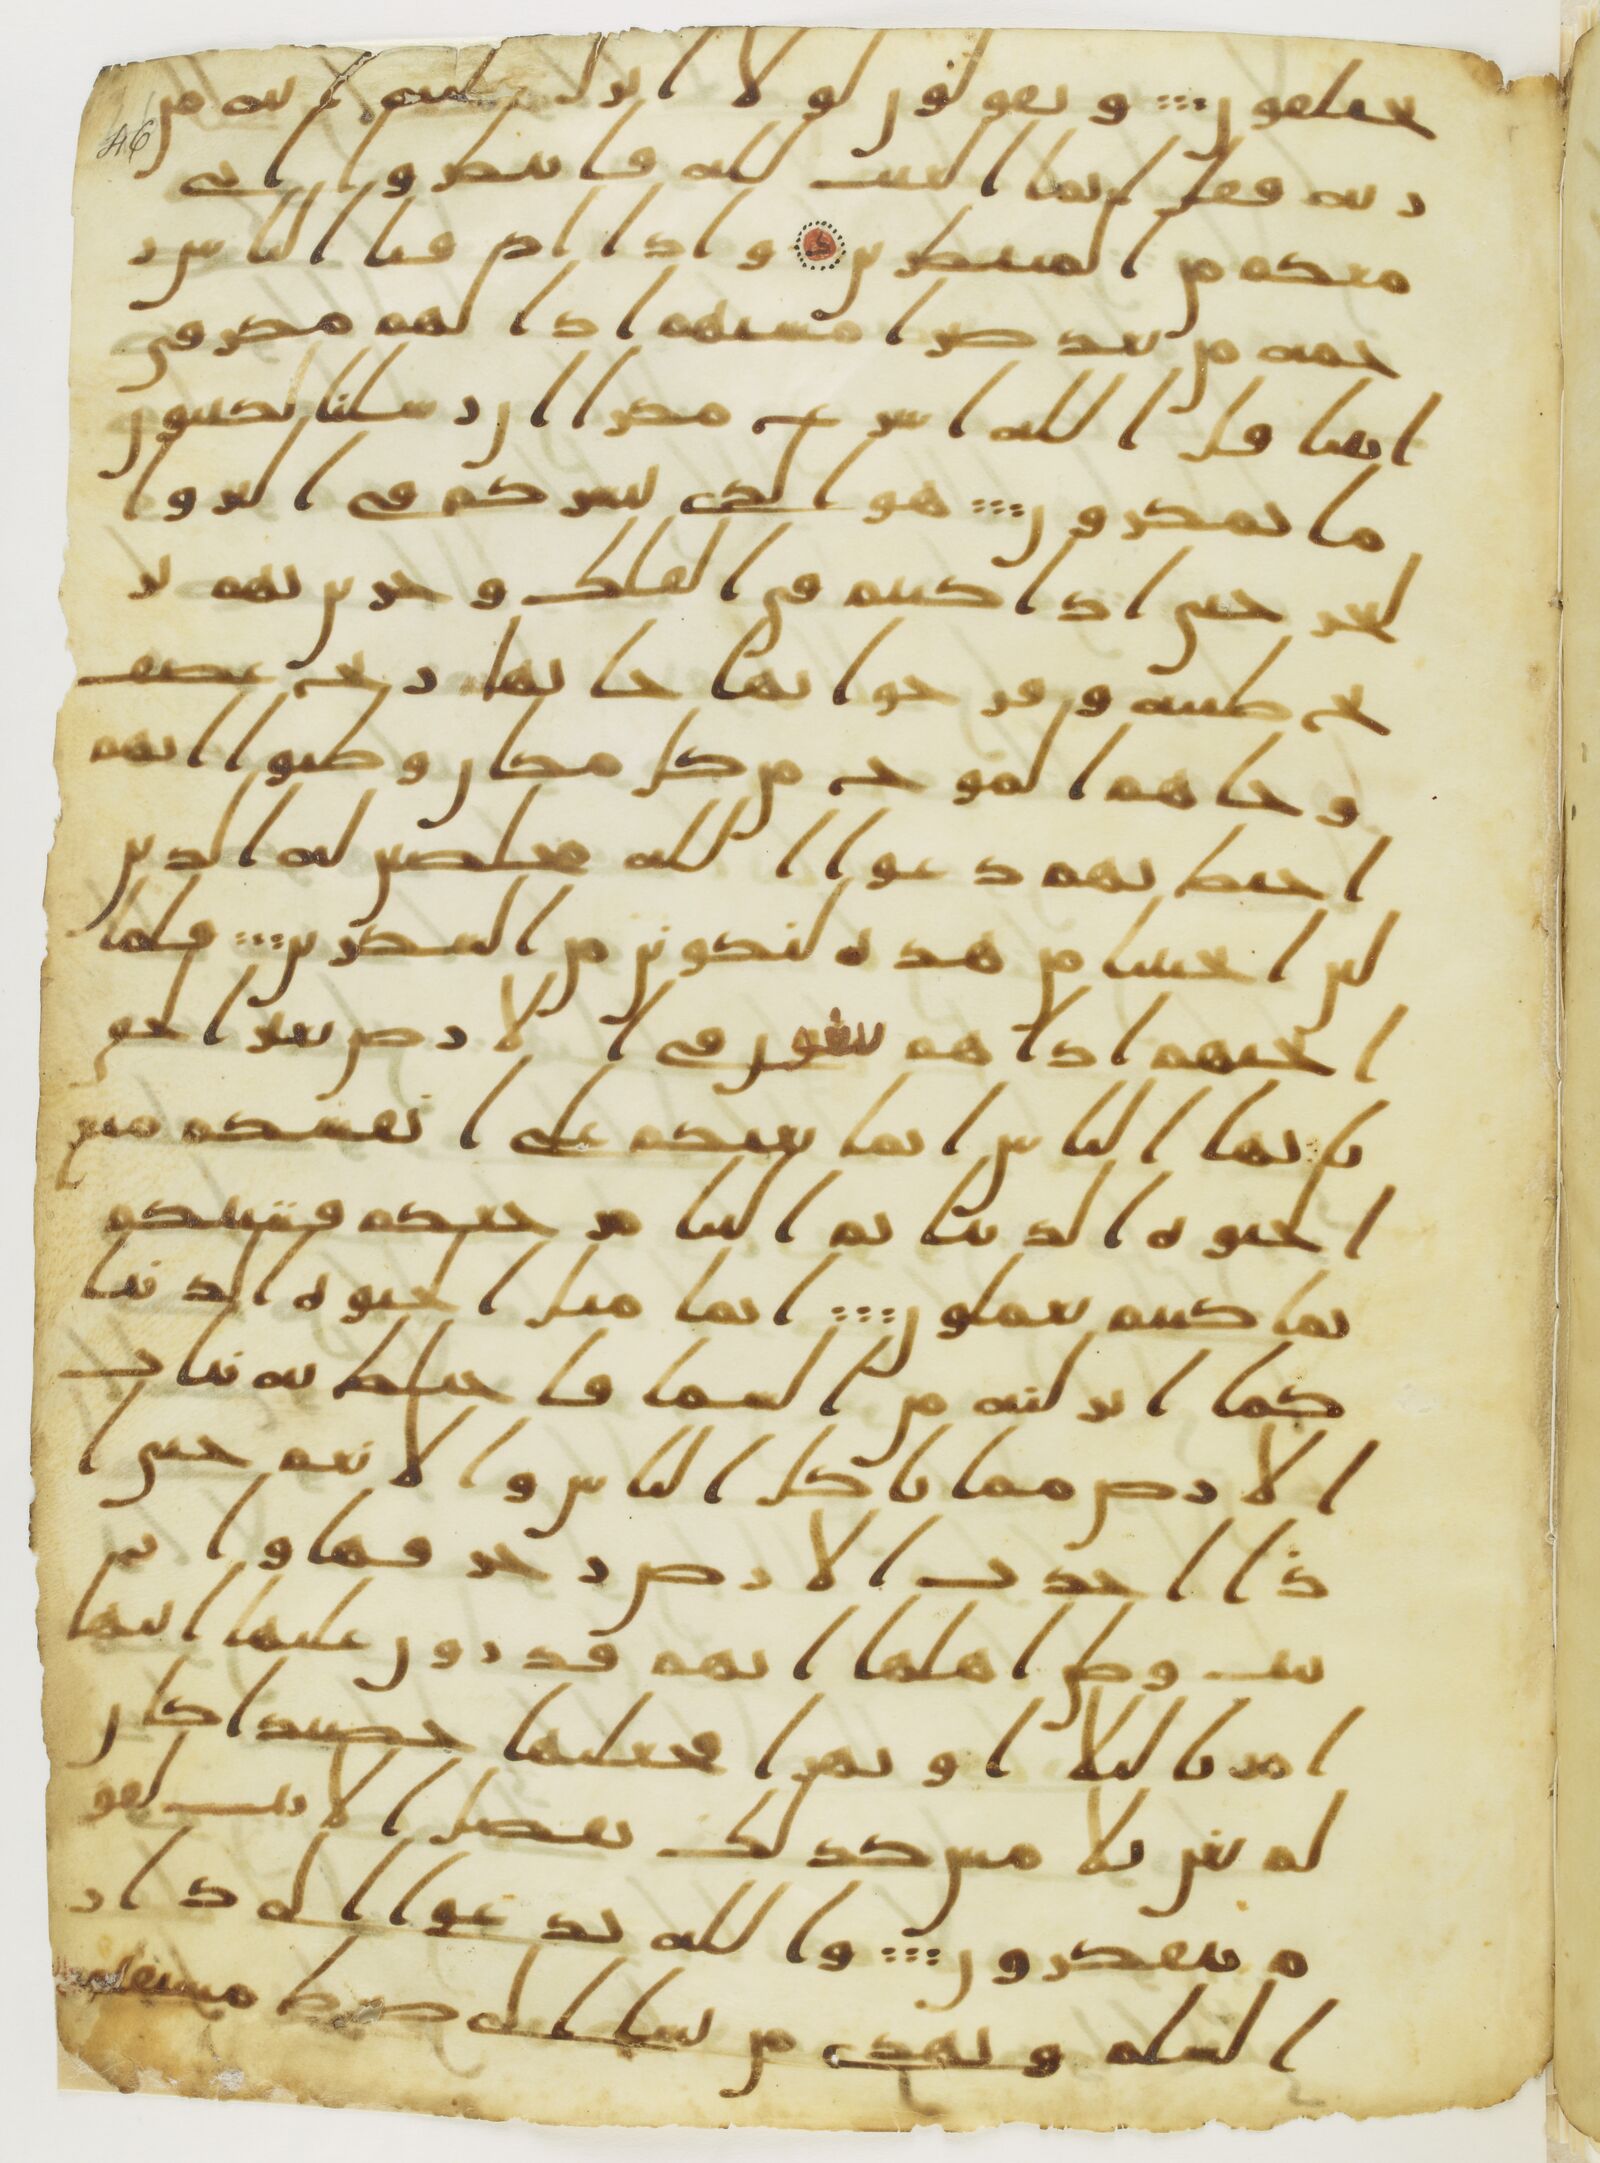 يختلفون ؞ ويقولون لولا انزل عليه اية من
ربه فقل انما الغيب لله فانتظروا اني
معكم من المنتظرين واذا اذقنا الناس ر
حمة من بعد ضرا مستهم اذا لهم مكر في
ايتنا قل الله اسرع مكرا ان رسلنا يكتبون
ما تمكرون ؞ هو الذي يسيركم في البر وا
لبحر حتى اذا كنتم في الفلك وجرين بهم بر
يح طيبة وفرحوا بها جاتها ريح عصف
وجاهم الموج من كل مكان وظنوا انهم
احيط بهم دعوا الله مخلصين له الدين
لين انجيتنا من هذه لنكونن من الشكرين ؞ فلما
انجيهم اذا هم يبغون في الارض بغير الحق
يايها الناس انما بغيكم على انفسكم متع
الحيوة الدنيا ثم الينا مرجعكم فننبيكم
بما كنتم تعملون ؞ انما مثل الحيوة الدنيا
كما انزلنه من السما فاختلط به نبات
الارض مما ياكل الناس والانعم حتى ا
ذا اخذت الارض زخرفها وازي
نت وظن اهلها انهم قدرون عليها اتيها
امرنا ليلا او نهرا فجعلنها حصيدا كان
لم تغن بالامس كذلك نفصل الايت لقو
م يتفكرون ؞ والله يدعوا الى دار
السلم ويهدي من يشا الى صرط مستقيم
46